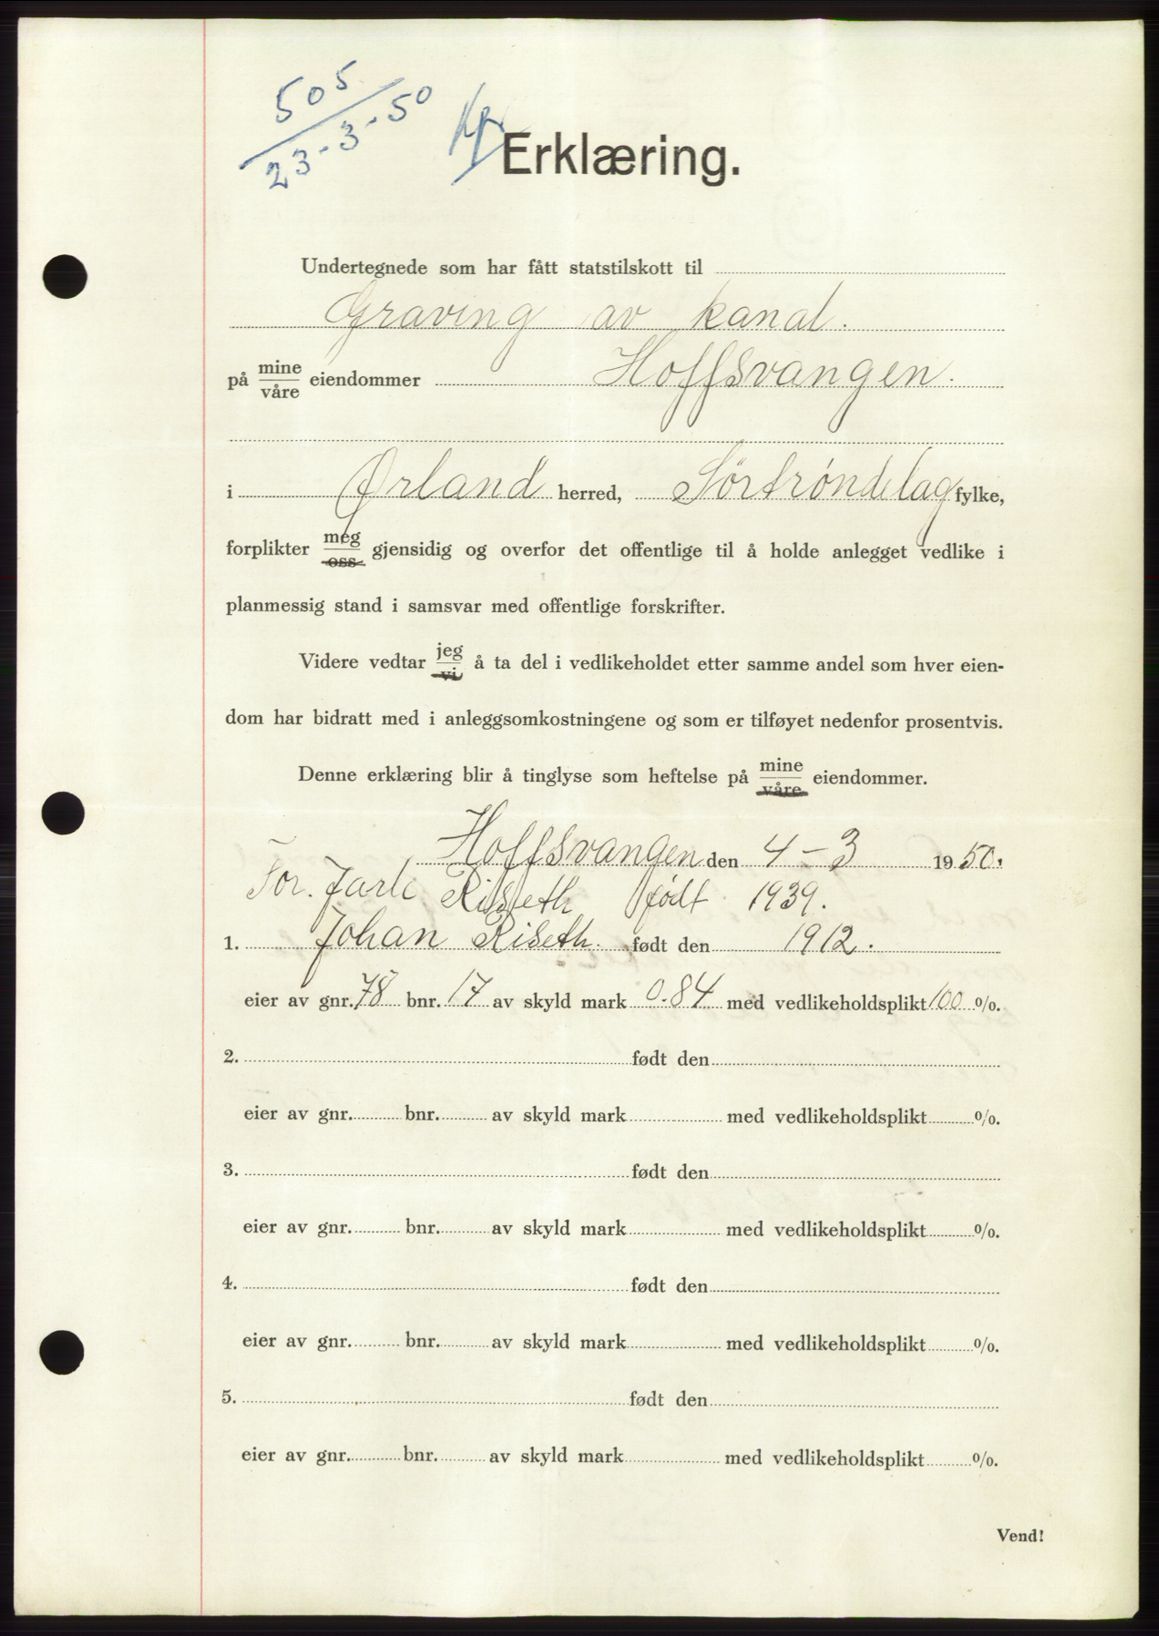 505
23-3-50
Erklæring.
Undertegnede som har fått statstilskott til
Graving av kanal.
på mine/våre eiendommer Hoffsvangen.
i Ørland herred, Sørtrøndelag fylke,
forplikter meg/oss gjensidig og overfor det offentlige til å holde anlegget vedlike i
planmessig stand i samsvar med offentlige forskrifter.
Videre vedtar jeg/vi å ta del i vedlikeholdet etter samme andel som hver eien-
dom har bidratt med i anleggsomkostningene og som er tilføyet nedenfor prosentvis.
Denne erklæring blir å tinglyse som heftelse på mine/våre eiendommer.
Hoffsvangen den 4-3 1950.
For. Jarle Riseth født 1939.
1. Johan Riseth. født den 1912.
eier av gnr. 78 bnr. 17 av skyld mark 0.84 med vedlikeholdsplikt 100 %.
2. født den
eier av gnr. bnr. av skyld mark med vedlikeholdsplikt %.
3. født den
eier av gnr. bnr. av skyld mark med vedlikeholdsplikt %.
4. født den
eier av gnr. bnr. av skyld mark med vedlikeholdsplikt %.
5. født den
eier av gnr. bnr. av skyld mark med vedlikeholdsplikt %.
Vend!